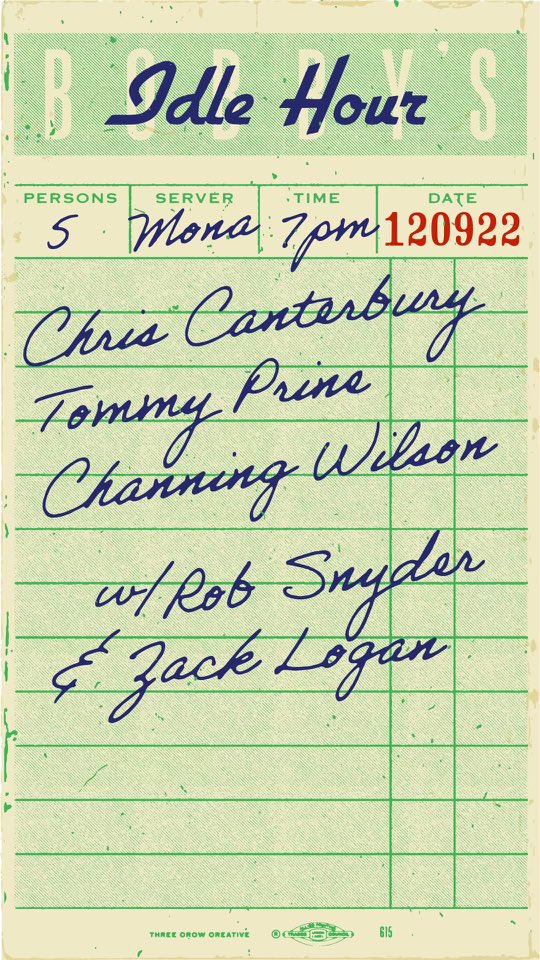 BOBBY'S
Idle Hour
PERSONS SERVER TIME DATE
5 Mona 7pm 120922
Chris Canterbury
Tommy Prine
Channing Wilson
w/ Rob Snyder
& Zack Logan
THREE CROW CREATIVE ® TRADES COUNCIL 615